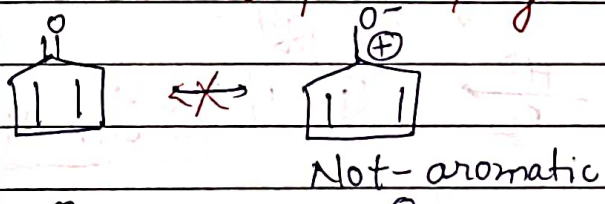 O O⁻
⊕
Not-aromatic